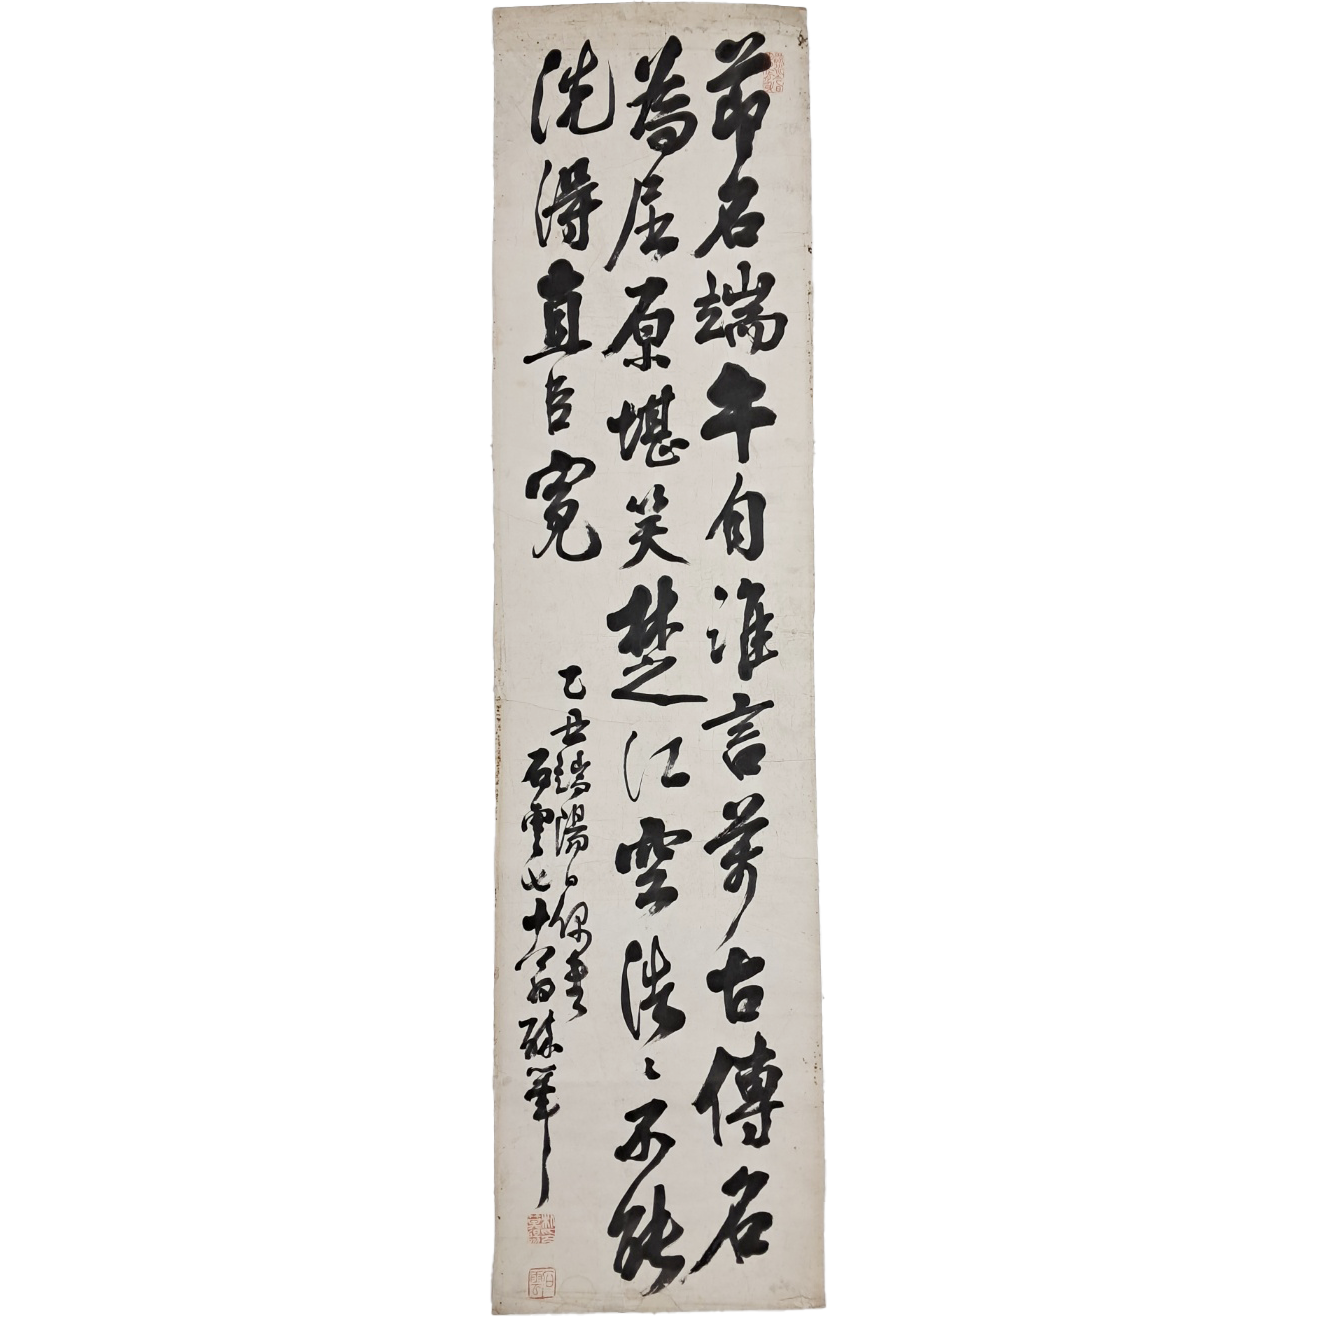 節名端午自誰言萬古傳名
為屈原堪笑楚江空浩〻不能
洗得直臣寃
乙丑端陽日偶書
石雲七十翁醉筆